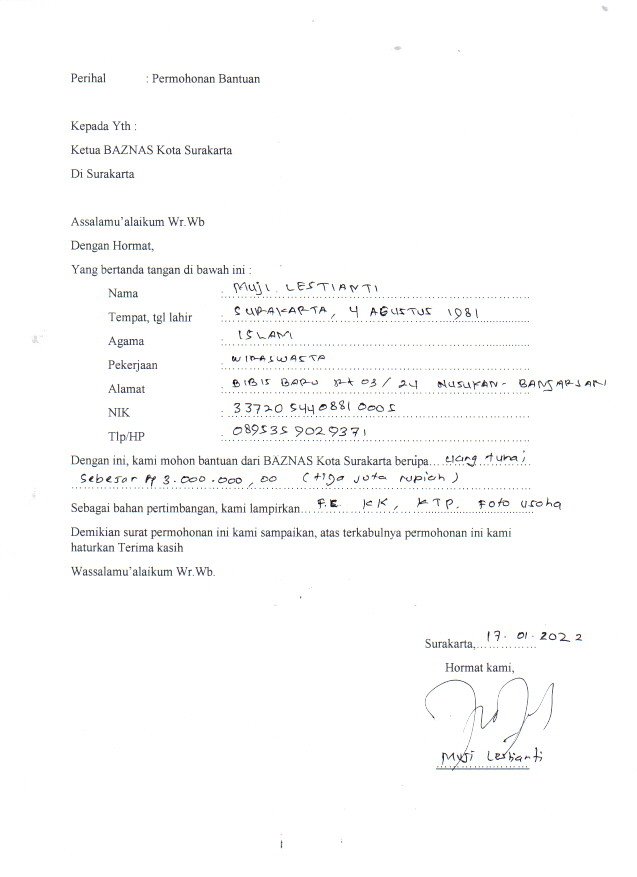 Perihal : Permohonan Bantuan
Kepada Yth :
Ketua BAZNAS Kota Surakarta
Di Surakarta
Assalamu'alaikum Wr.Wb
Dengan Hormat,
Yang bertanda tangan di bawah ini :
Nama : MUJI LESTIANTI
Tempat, tgl lahir : SURAKARTA, 4 AGUSTUS 1981
Agama : ISLAM
Pekerjaan : WIRASWASTA
Alamat : BIBIS BARU Rt 03/24 NUSUKAN - BANJARSARI
NIK : 3372054408810005
Tlp/HP : 0895359029371
Dengan ini, kami mohon bantuan dari BAZNAS Kota Surakarta berupa uang tunai
sebesar Rp 3.000.000,00 (tiga juta rupiah)
Sebagai bahan pertimbangan, kami lampirkan KK, KTP, Foto usaha
Demikian surat permohonan ini kami sampaikan, atas terkabulnya permohonan ini kami
haturkan Terima kasih
Wassalamu'alaikum Wr.Wb.
Surakarta, 17.01.2022
Hormat kami,
Muji Lestianti